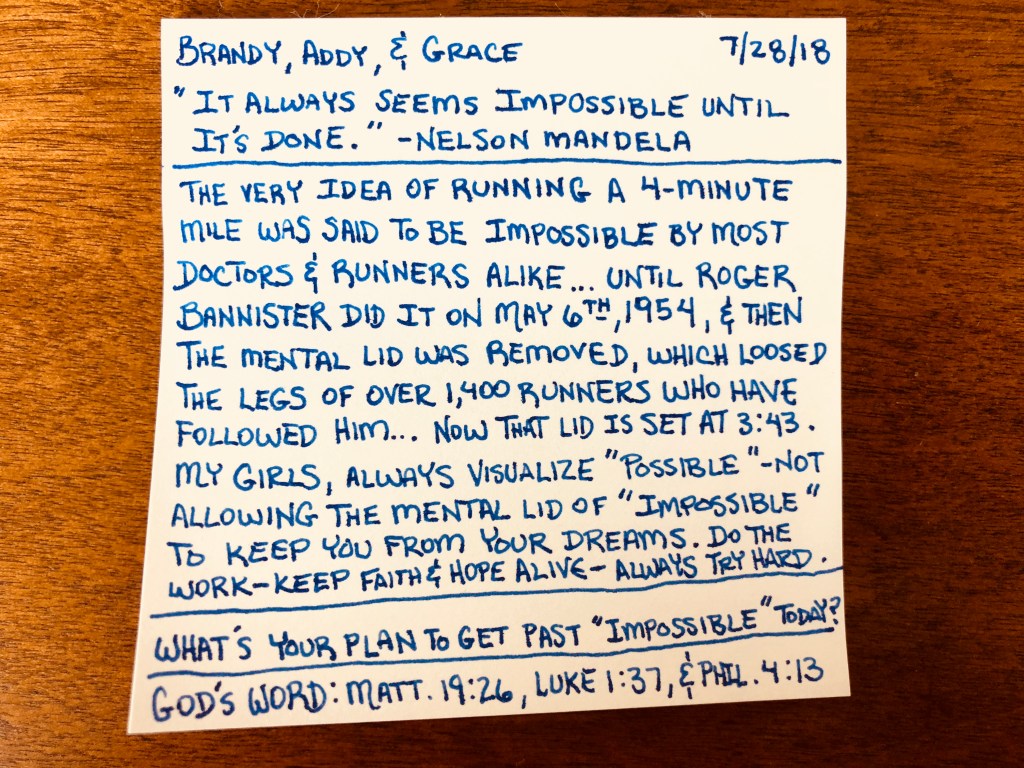 BRANDY, ADDY, & GRACE 7/28/18
"IT ALWAYS SEEMS IMPOSSIBLE UNTIL
IT'S DONE." -NELSON MANDELA
THE VERY IDEA OF RUNNING A 4-MINUTE
MILE WAS SAID TO BE IMPOSSIBLE BY MOST
DOCTORS & RUNNERS ALIKE... UNTIL ROGER
BANNISTER DID IT ON MAY 6TH, 1954, & THEN
THE MENTAL LID WAS REMOVED, WHICH LOOSED
THE LEGS OF OVER 1,400 RUNNERS WHO HAVE
FOLLOWED HIM... NOW THAT LID IS SET AT 3:43.
MY GIRLS, ALWAYS VISUALIZE "POSSIBLE"-NOT
ALLOWING THE MENTAL LID OF "IMPOSSIBLE"
TO KEEP YOU FROM YOUR DREAMS. DO THE
WORK-KEEP FAITH & HOPE ALIVE- ALWAYS TRY HARD.
WHAT'S YOUR PLAN TO GET PAST "IMPOSSIBLE" TODAY?
GOD'S WORD: MATT. 19:26, LUKE 1:37, & PHIL. 4:13